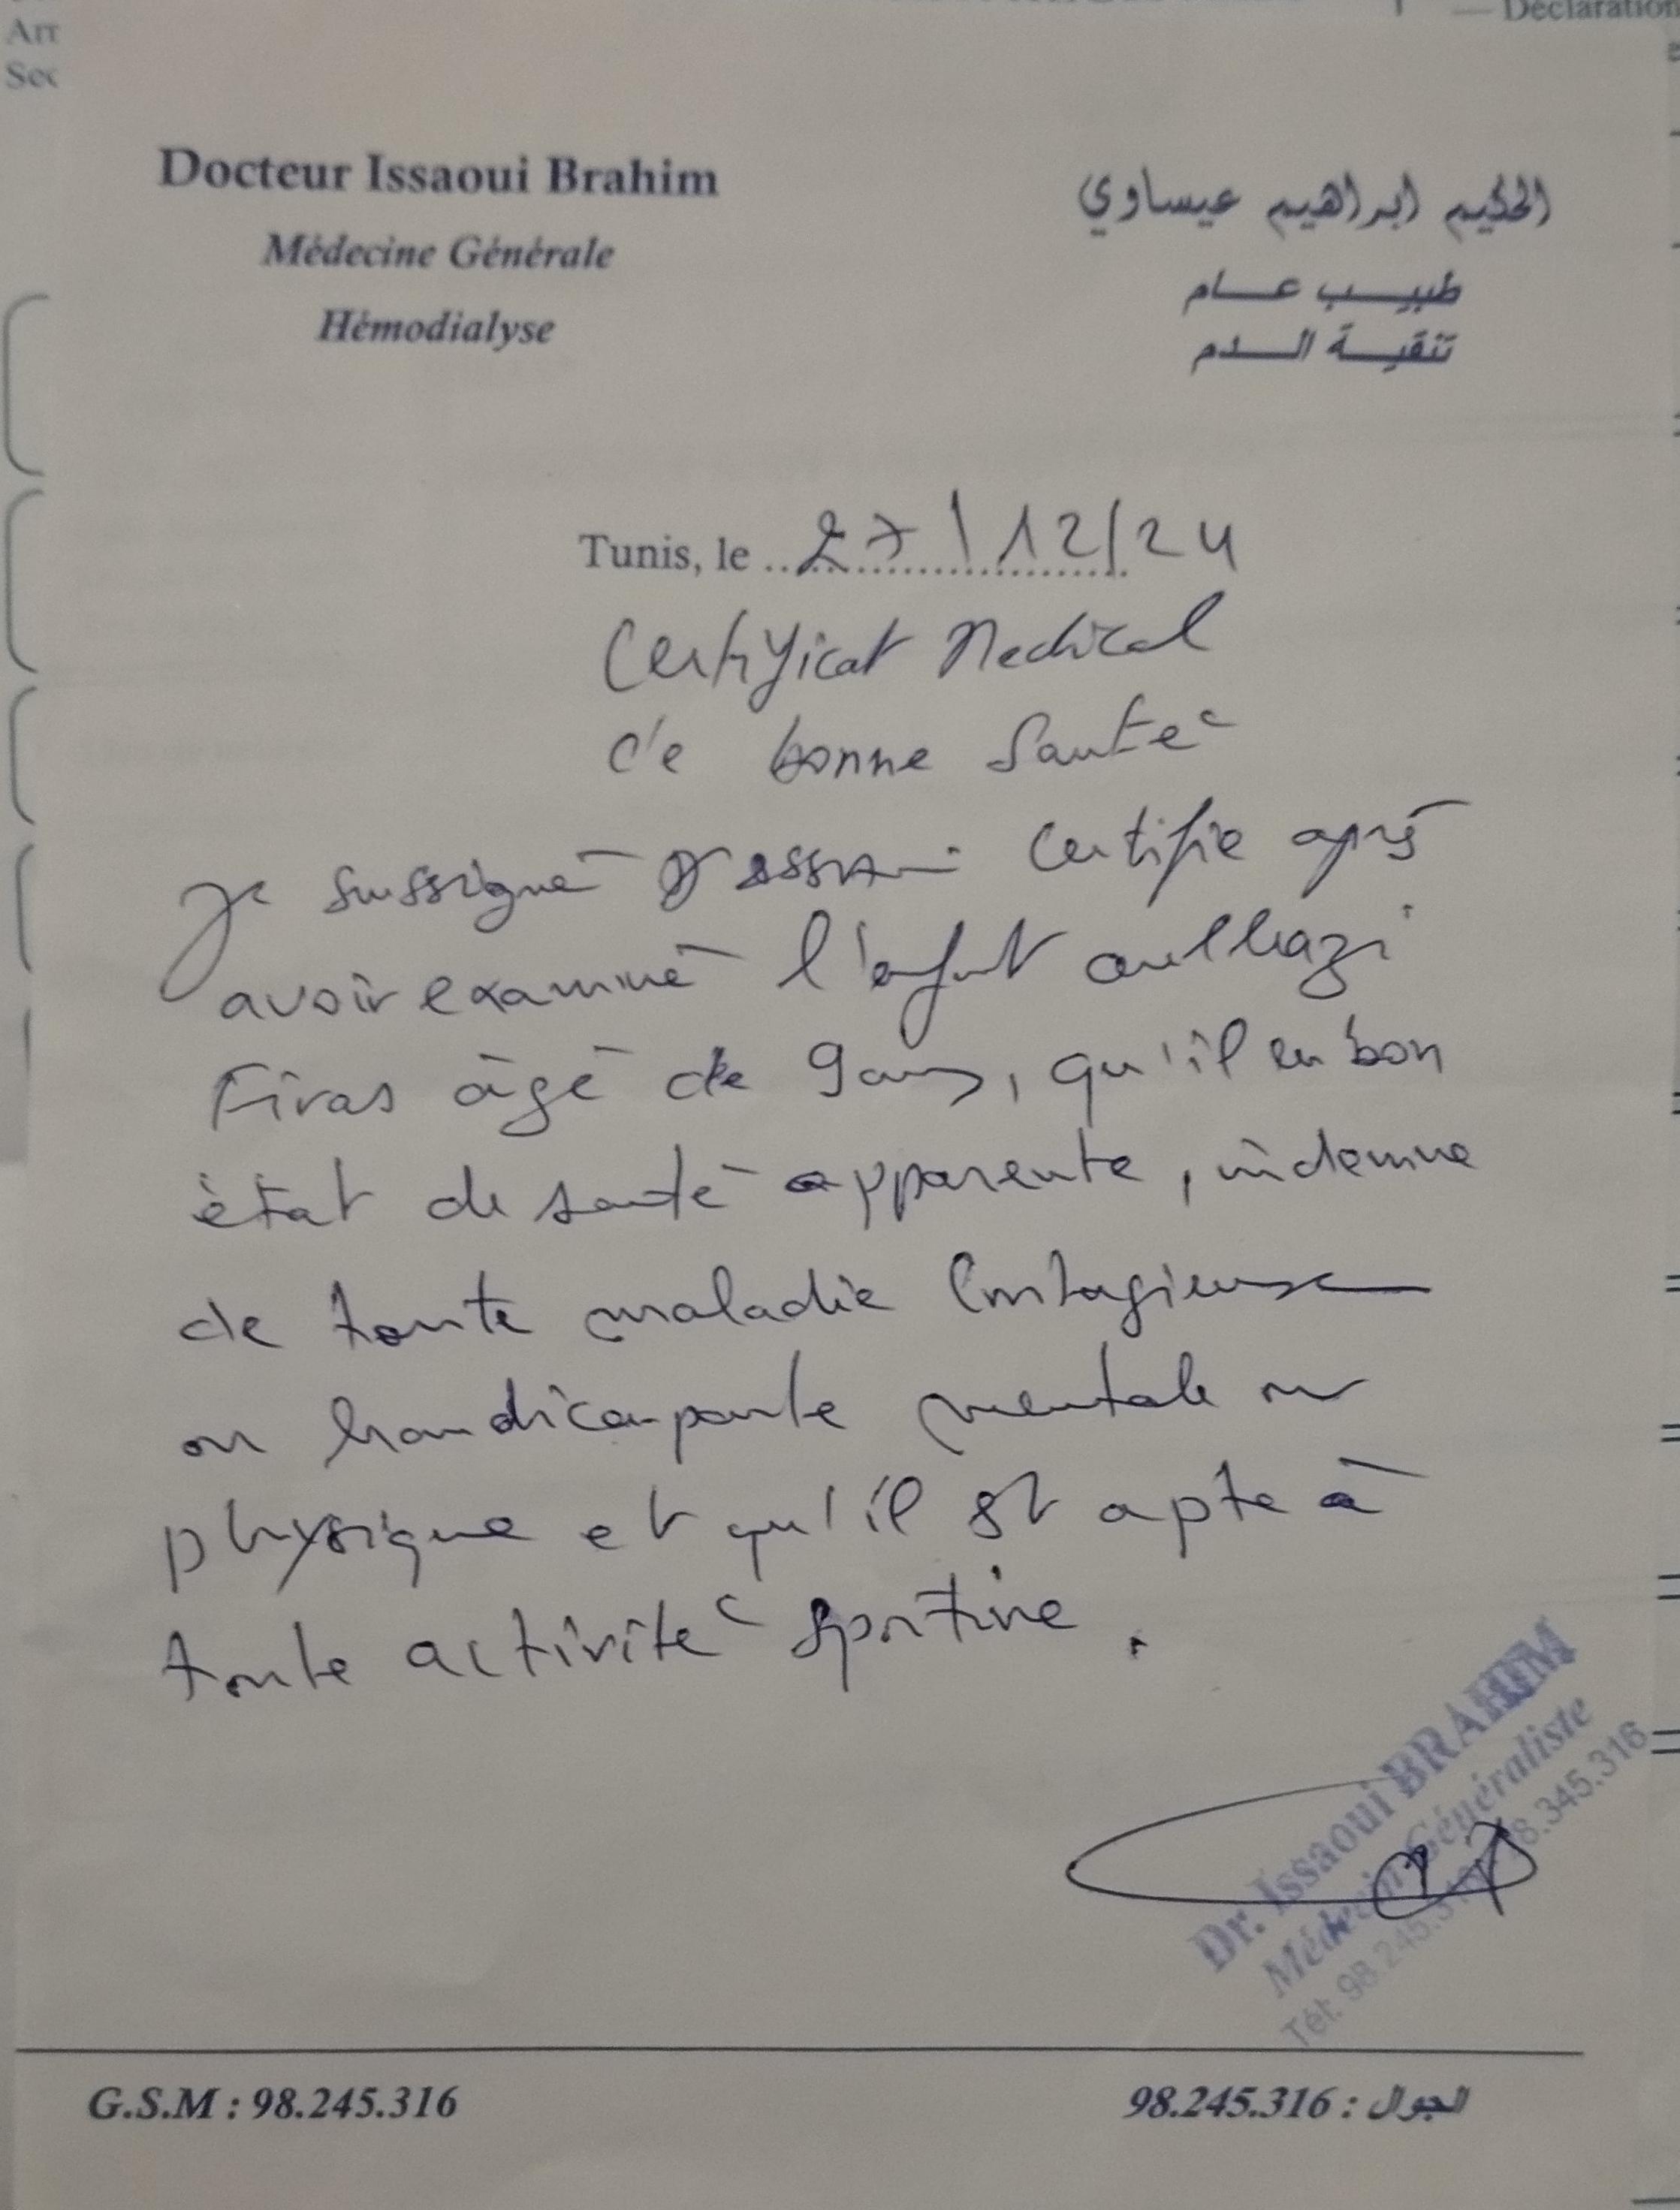 Arr
Sec
— Déclaration
Docteur Issaoui Brahim
Médecine Générale
Hémodialyse
الحكيم ابراهيم عيساوي
طبيب عام
تنقية الدم
Tunis, le 27/12/24
Certificat Medical
de bonne Santé
Je sussigné Dr issaoui certifie après
avoir examiné l'enfant
Firas âgé de 9 ans, qu'il en bon
état de santé apparente, indemne
de toute maladie Contagieuse
ou handicapante mentale ou
physique et qu'il est apte à
toute activité sportive.
Dr. Issaoui BRAHIM
Médecin Généraliste
Tél: 98.245.316
G.S.M : 98.245.316
الجوال : 98.245.316